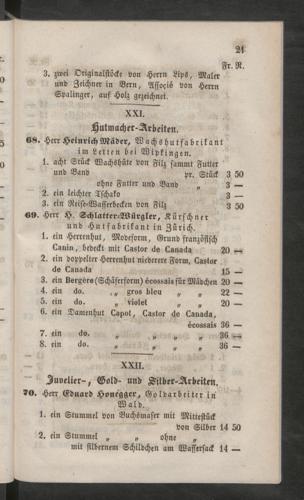 21
Fr. R.
3. zwei Originalstöcke von Herrn Lips, Maler
und Zeichner in Bern, Associé von Herrn
Spalinger, auf Holz gezeichnet.
XXI.
Hutmacher-Arbeiten.
68. Herr Heinrich Mäder, Wachshutfabrikant
im Letten bei Wipkingen.
1. acht Stück Wachshüte von Filz sammt Futter
und Band pr. Stück 3 50
ohne Futter und Band „ 3 —
2. ein leichter Tschako 3 —
3. ein Reise-Wasserbecken von Filz 3 50
69. Herr H. Schlatter-Würgler, Kürschner
und Hutfabrikant in Zürich.
1. ein Herrenhut, Modeform, Grund französisch
Canin, bedeckt mit Castor de Canada 20 —
2. ein doppelter Herrenhut niederere Form, Castor
de Canada 15 —
3. ein Bergère (Schäferform) écossais für Mädchen 20 —
4. ein do. „ gros bleu „ „ 22 —
5. ein do. „ violet „ „ 20 —
6. ein Damenhut Capot, Castor de Canada,
écossais 36 —
7. ein do. „ „ „ 36 —
8. ein do. „ „ „ 36 —
XXII.
Juvelier-, Gold- und Silber-Arbeiten.
70. Herr Eduard Honegger, Goldarbeiter in
Wald.
1. ein Stummel von Buchsmaser mit Mittestück
von Silber 14 50
2. ein Stummel „ „ ohne „
mit silbernem Schildchen am Wassersack 14 —